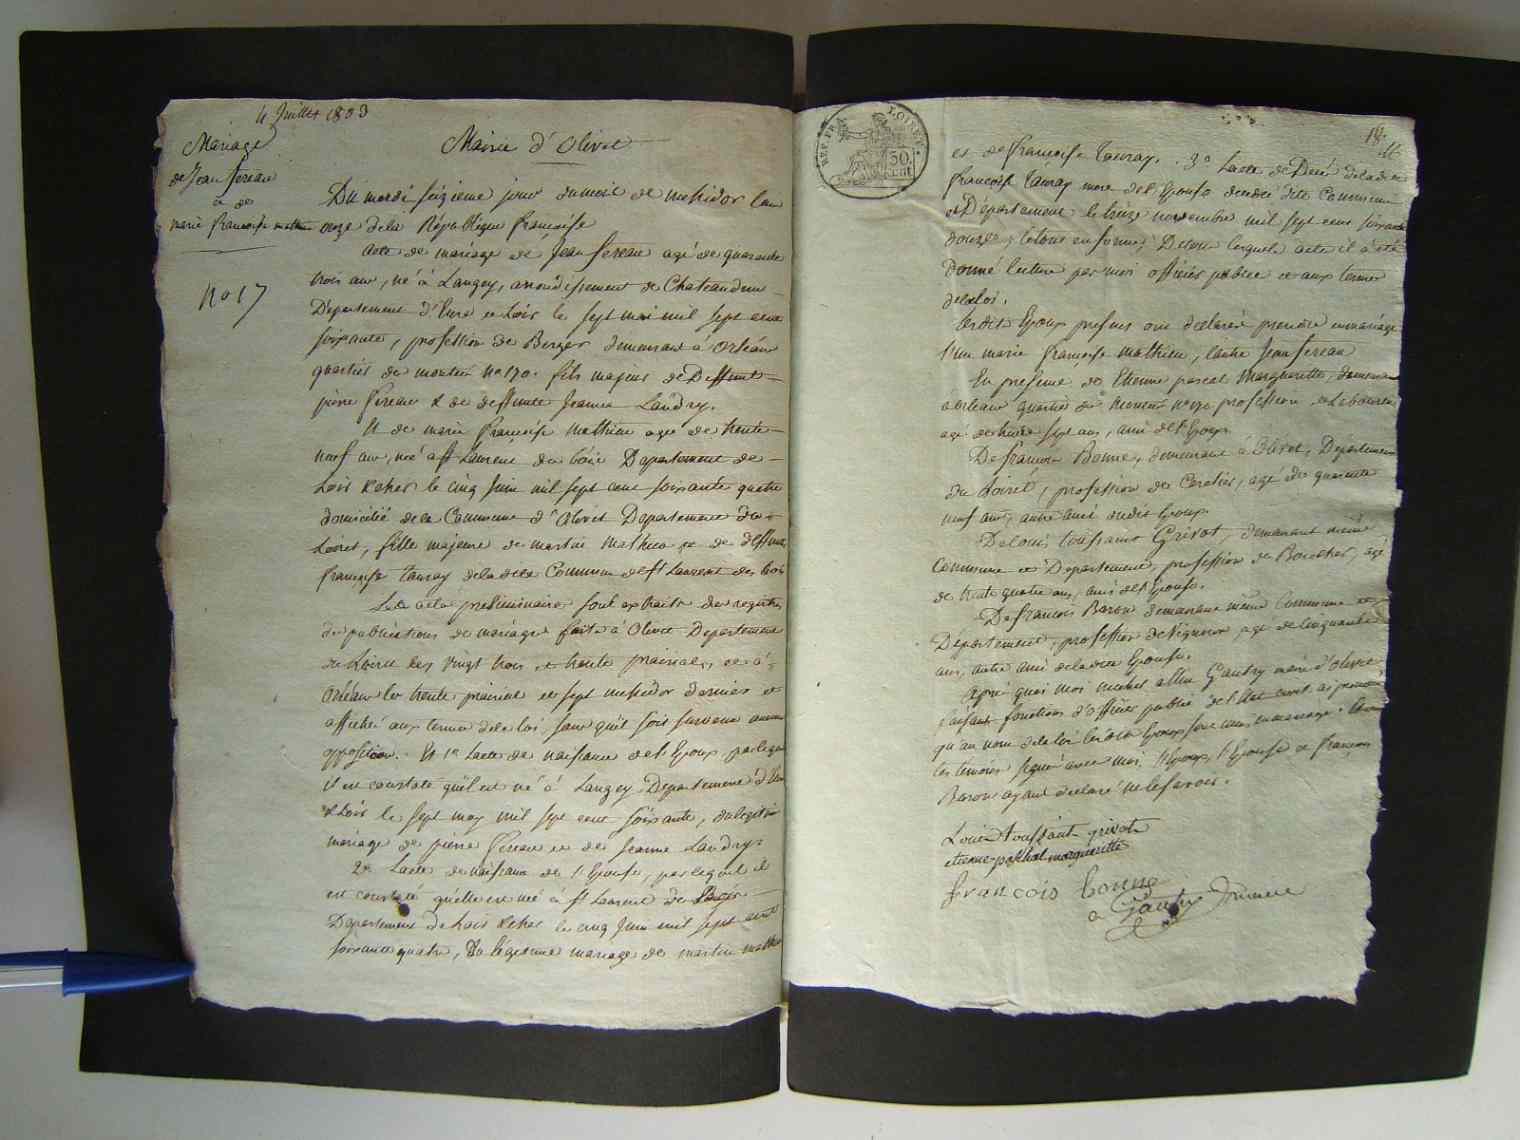 4 Juillet 1803
Mariage
de Jean fereau
a de
marie francoise mathieu
No 17
Mairie d'Olivet
Du mardi seizieme jour du mois de messidor l'an
onze de la République francoise
Acte de mariage de Jean fereau agé de quarante
trois ans, né à Langey, arrondissement de Chateaudun
Département d'Eure et Loir le sept mai mil sept cent
soixante, profession de Berger demeurant à Orléans
quartier du monteé no 170. fils majeur de Deffunt
pierre fereau & de deffunte Jeanne Landry.
Et de marie francoise mathieu agée de trente
neuf ans, née a St Laurent des bois Departement de
Loir & cher le cinq Juin mil sept cent soixante quatre
domicilié de la Commune d'Olivet Departement du
Loiret, fille majeure de martin mathieu et de deffunte
francoise tauray de la dite Commune de St Laurent des bois
Les actes preliminaires sont extraits des registres
de publications de mariage faite à Olivet Departement
du Loiret les vingt trois et trente prairial, et à
Orléans les trente prairial et sept messidor dernier et
affiché aux termes de la loi, sans qu'il soit survenu aucune
opposition. Et 1° L'acte de naissance de l'Epoux, par lequel
il est constaté qu'il est né à Langey Département d'Eure
& Loir le sept may mil sept cent soixante, du légitime
mariage de pierre fereau et de Jeanne Landry.
2° L'acte de naissance de l'Epouse, par lequel il
est constaté qu'elle est née à St Laurent des
Departement de Loir & cher le cinq Juin mil sept cent
soixante quatre, du légitime mariage de martin mathieu
REP. FRA. LOIRET
50 cent
18.
et de francoise tauray. 3° L'acte de Décé de la dite
francoise tauray mere de l'Epouse décédée dite Commune
et Département le treize novembre mil sept cent soixante
douze, le tout en forme; De tous lesquels actes il a été
donné lecture par moi officier public et aux termes
de la loi.
Lesdits Epoux presens ont declaré prendre en mariage
l'un marie françoise mathieu, l'autre Jean fereau
En presence de Etienne pascal Margueritte, demeurant
a orleans quartier du no 170 profession de Laboureur
agé de trente sept ans, ami de l'Epoux
De françois Bonne, demeurant à Olivet, Département
du Loiret, profession de Cordier, agé de quarante
neuf ans, autre ami dudit Epoux
De Louis toussaint Grivot, demeurant même
Commune et Departement, profession de agé
de trente quatre ans, ami de l'Epouse.
De francois Baron demeurant même Commune et
Département, profession de Vigneron, agé de Cinquante
ans, autre ami de la dite Epouse.
Après quoi moi michel Gautry maire d'olivet
faisant fonctions d'officier public de l'Etat civil ai prononcé
qu'au nom de la loi les dits Epoux sont unis en mariage.
les temoins signé avec moi, l'Epoux, l'Epouse et françois
Baron ayant declaré ne le savoir.
Louis toussaint grivot
etienne paschal margueritte
francois bonne
Gautry maire